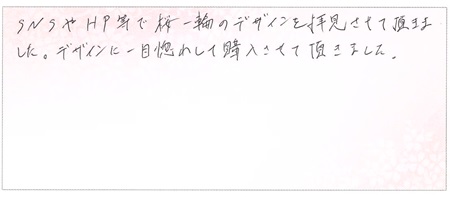 SNSやHP等で桜一輪のデザインを拝見させて頂きま
した。デザインに一目惚れして購入させて頂きました。